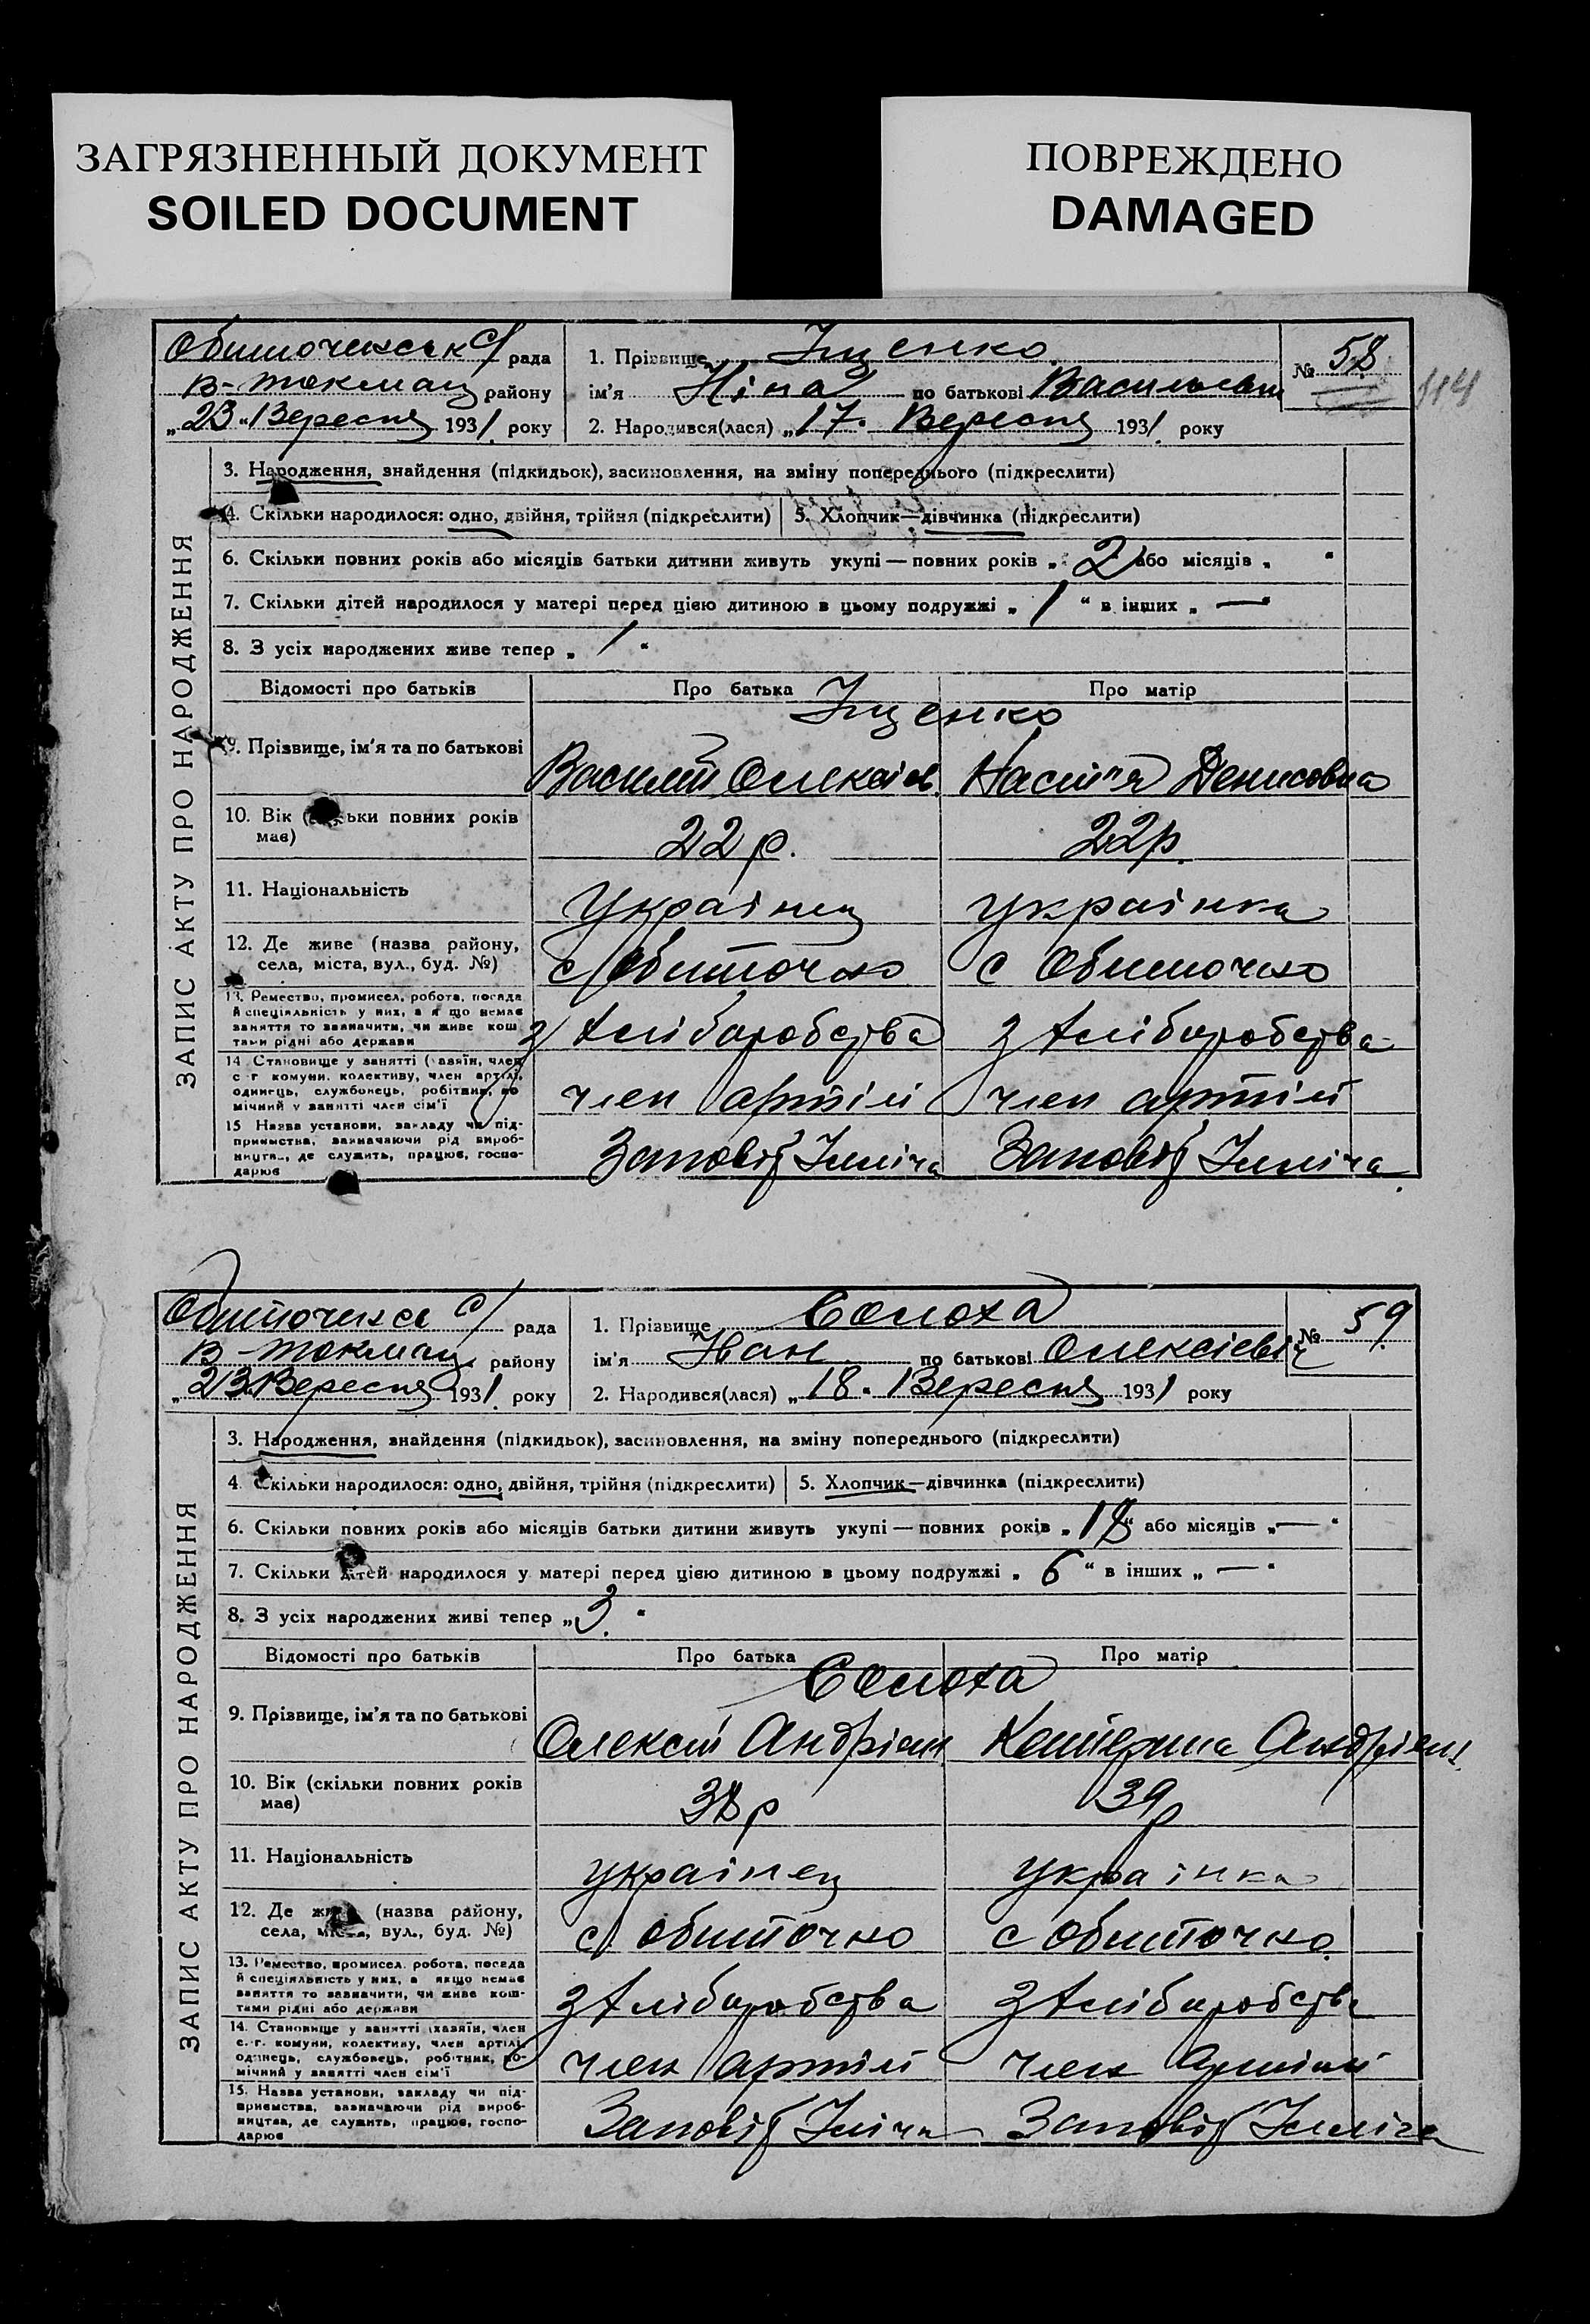 ЗАГРЯЗНЕННЫЙ ДОКУМЕНТ
SOILED DOCUMENT
ПОВРЕЖДЕНО
DAMAGED
Обиточенськ с/ рада
В-Токмац району
„23“ Вересня 1931. року
1. Прізвище Іщенко
ім'я Ніна по батькові Васильевн
2. Народився(лася) „17. Вересня 1931. року
№ 58
114
ЗАПИС АКТУ ПРО НАРОДЖЕННЯ
3. Народження, знайдення (підкидьок), засиновлення, на зміну попереднього (підкреслити)
4. Скільки народилося: одно, двійня, трійня (підкреслити) 5. Хлопчик—дівчинка (підкреслити)
6. Скільки повних років або місяців батьки дитини живуть укупі — повних років „ 2 або місяців „ “
7. Скільки дітей народилося у матері перед цією дитиною в цьому подружжі „ 1 “ в інших „ — “
8. З усіх народжених живе тепер „ 1 “
Відомості про батьків Про батька Про матір
Іщенко
9. Прізвище, ім'я та по батькові Василий Олексієв. Насття Денисовна
10. Вік (скільки повних років має) 22 р. 22р.
11. Національність Українец українка
12. Де живе (назва району,
села, міста, вул., буд. №) с Обиточно с Обиточно
13. Ремество, промисел, робота, посада
й спеціяльність у них, а я що немає
заняття то зазначити, чи живе кош
тами рідні або держави
з хліборобства з хліборобства
14 Становище у занятті (хазяїн, член
с г комуни. колективу, член артілі,
одинець, службовець, робітник, по
мічний у занятті член сім'ї
член артілі член артілі
15 Назва установи, закладу чи під-
приємства, зазначаючи рід вироб-
ництва, де служить, працює, госпо-
дарює
Заповіт Ілліча Заповіт Ілліча
Обиточенсь с/ рада
В-Токмац району
„23“ Вересня 1931. року
1. Прізвище Солоха
ім'я Іван по батькові Олексієвіч
2. Народився(лася) „18. Вересня 1931 року
№ 59
ЗАПИС АКТУ ПРО НАРОДЖЕННЯ
3. Народження, знайдення (підкидьок), засиновлення, на зміну попереднього (підкреслити)
4. Скільки народилося: одно, двійня, трійня (підкреслити) 5. Хлопчик—дівчинка (підкреслити)
6. Скільки повних років або місяців батьки дитини живуть укупі — повних років „ 18 “ або місяців „ — “
7. Скільки дітей народилося у матері перед цією дитиною в цьому подружжі „ 6 “ в інших „ — “
8. З усіх народжених живі тепер „ 3. “
Відомості про батьків Про батька Про матір
Солоха
9. Прізвище, ім'я та по батькові Олексій Андріев Катерина Андріев
10. Вік (скільки повних років має) 38 р 39р
11. Національність українец українка
12. Де живе (назва району,
села, міста, вул., буд. №) с Обиточно с Обиточно
13. Ремество, промисел. робота, посада
й спеціяльність у них, а якщо немає
заняття то зазначити, чи живе кош-
тами рідні або держави
з хліборобства з хліборобства
14. Становище у занятті (хазяїн, член
с.-г. комуни, колективу, член артілі,
одинець, службовець, робітник, по-
мічний у занятті член сім'ї
член артілі член артілі
15. Назва установи, закладу чи під-
приємства, зазначаючи рід вироб-
ництва, де служить, працює, госпо-
дарює
Заповіт Іліча Заповіт Ілліча